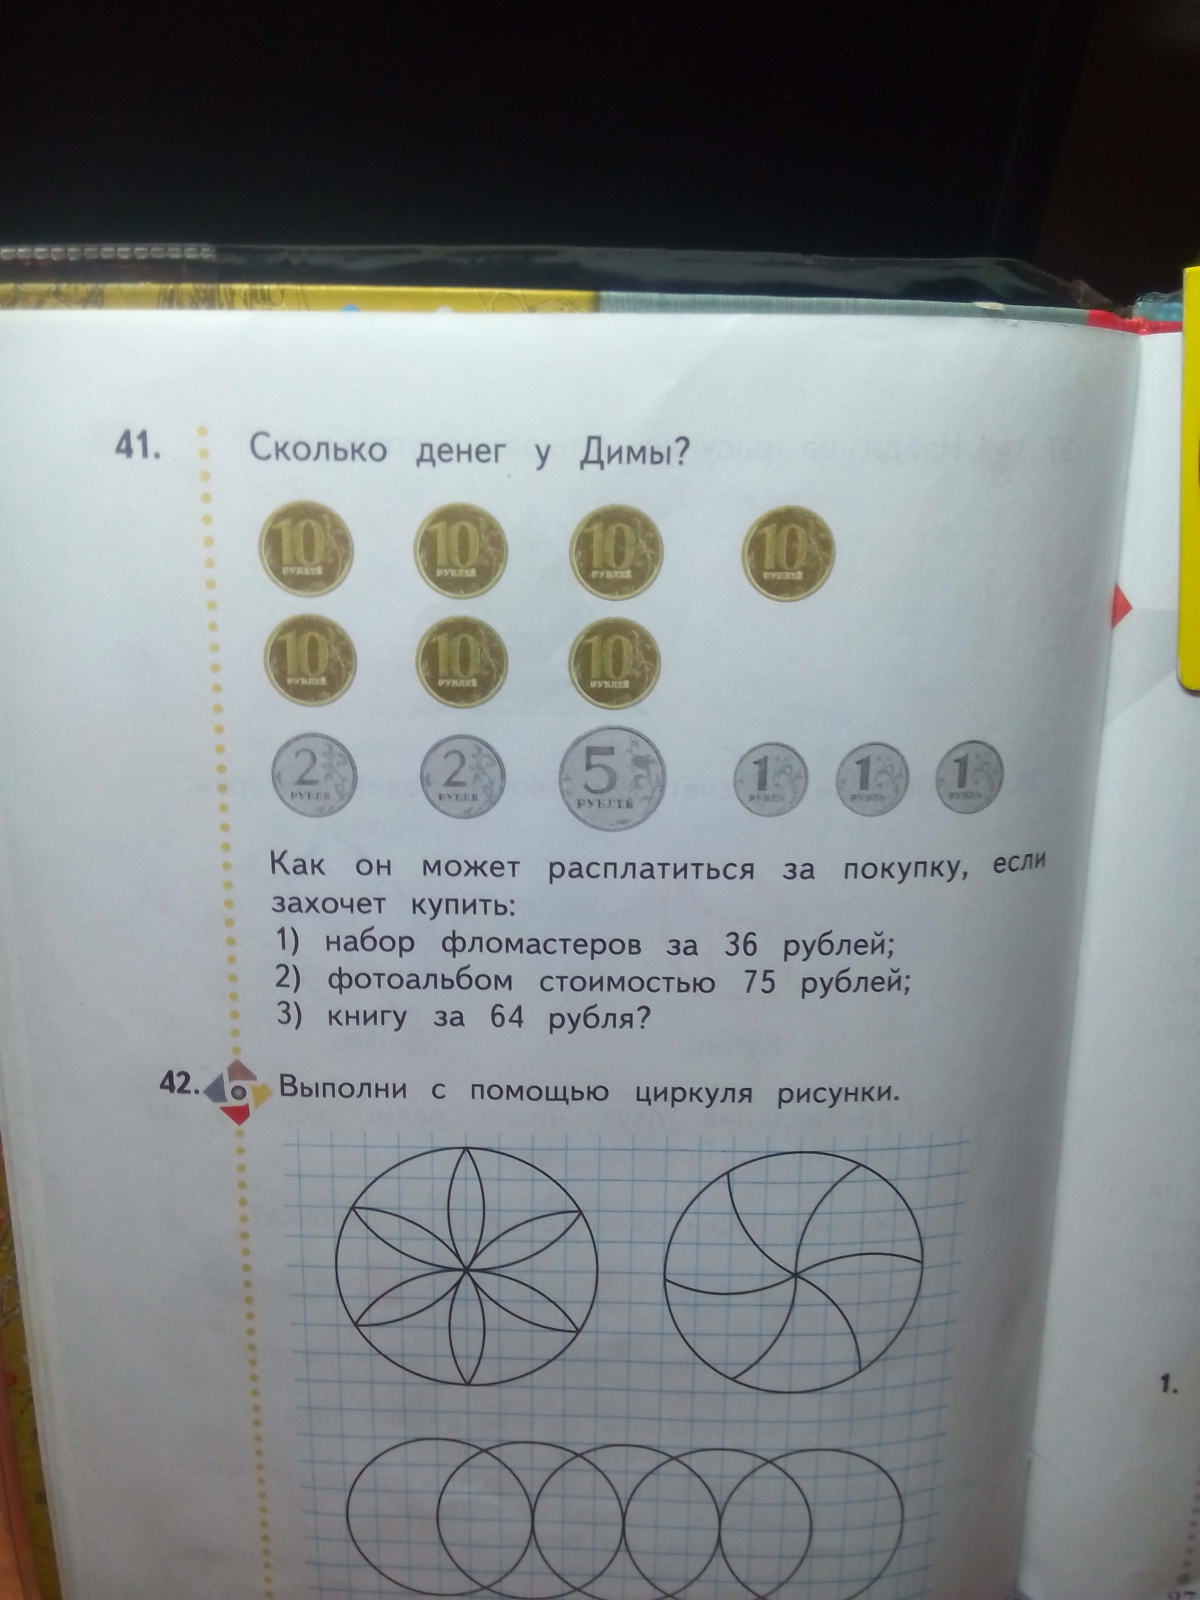 41. Сколько денег у Димы?
10 РУБЛЕЙ 10 РУБЛЕЙ 10 РУБЛЕЙ 10 РУБЛЕЙ
10 РУБЛЕЙ 10 РУБЛЕЙ 10 РУБЛЕЙ
2 РУБЛЯ 2 РУБЛЯ 5 РУБЛЕЙ 1 РУБЛЬ 1 РУБЛЬ 1 РУБЛЬ
Как он может расплатиться за покупку, если
захочет купить:
1) набор фломастеров за 36 рублей;
2) фотоальбом стоимостью 75 рублей;
3) книгу за 64 рубля?
42. Выполни с помощью циркуля рисунки.
1.